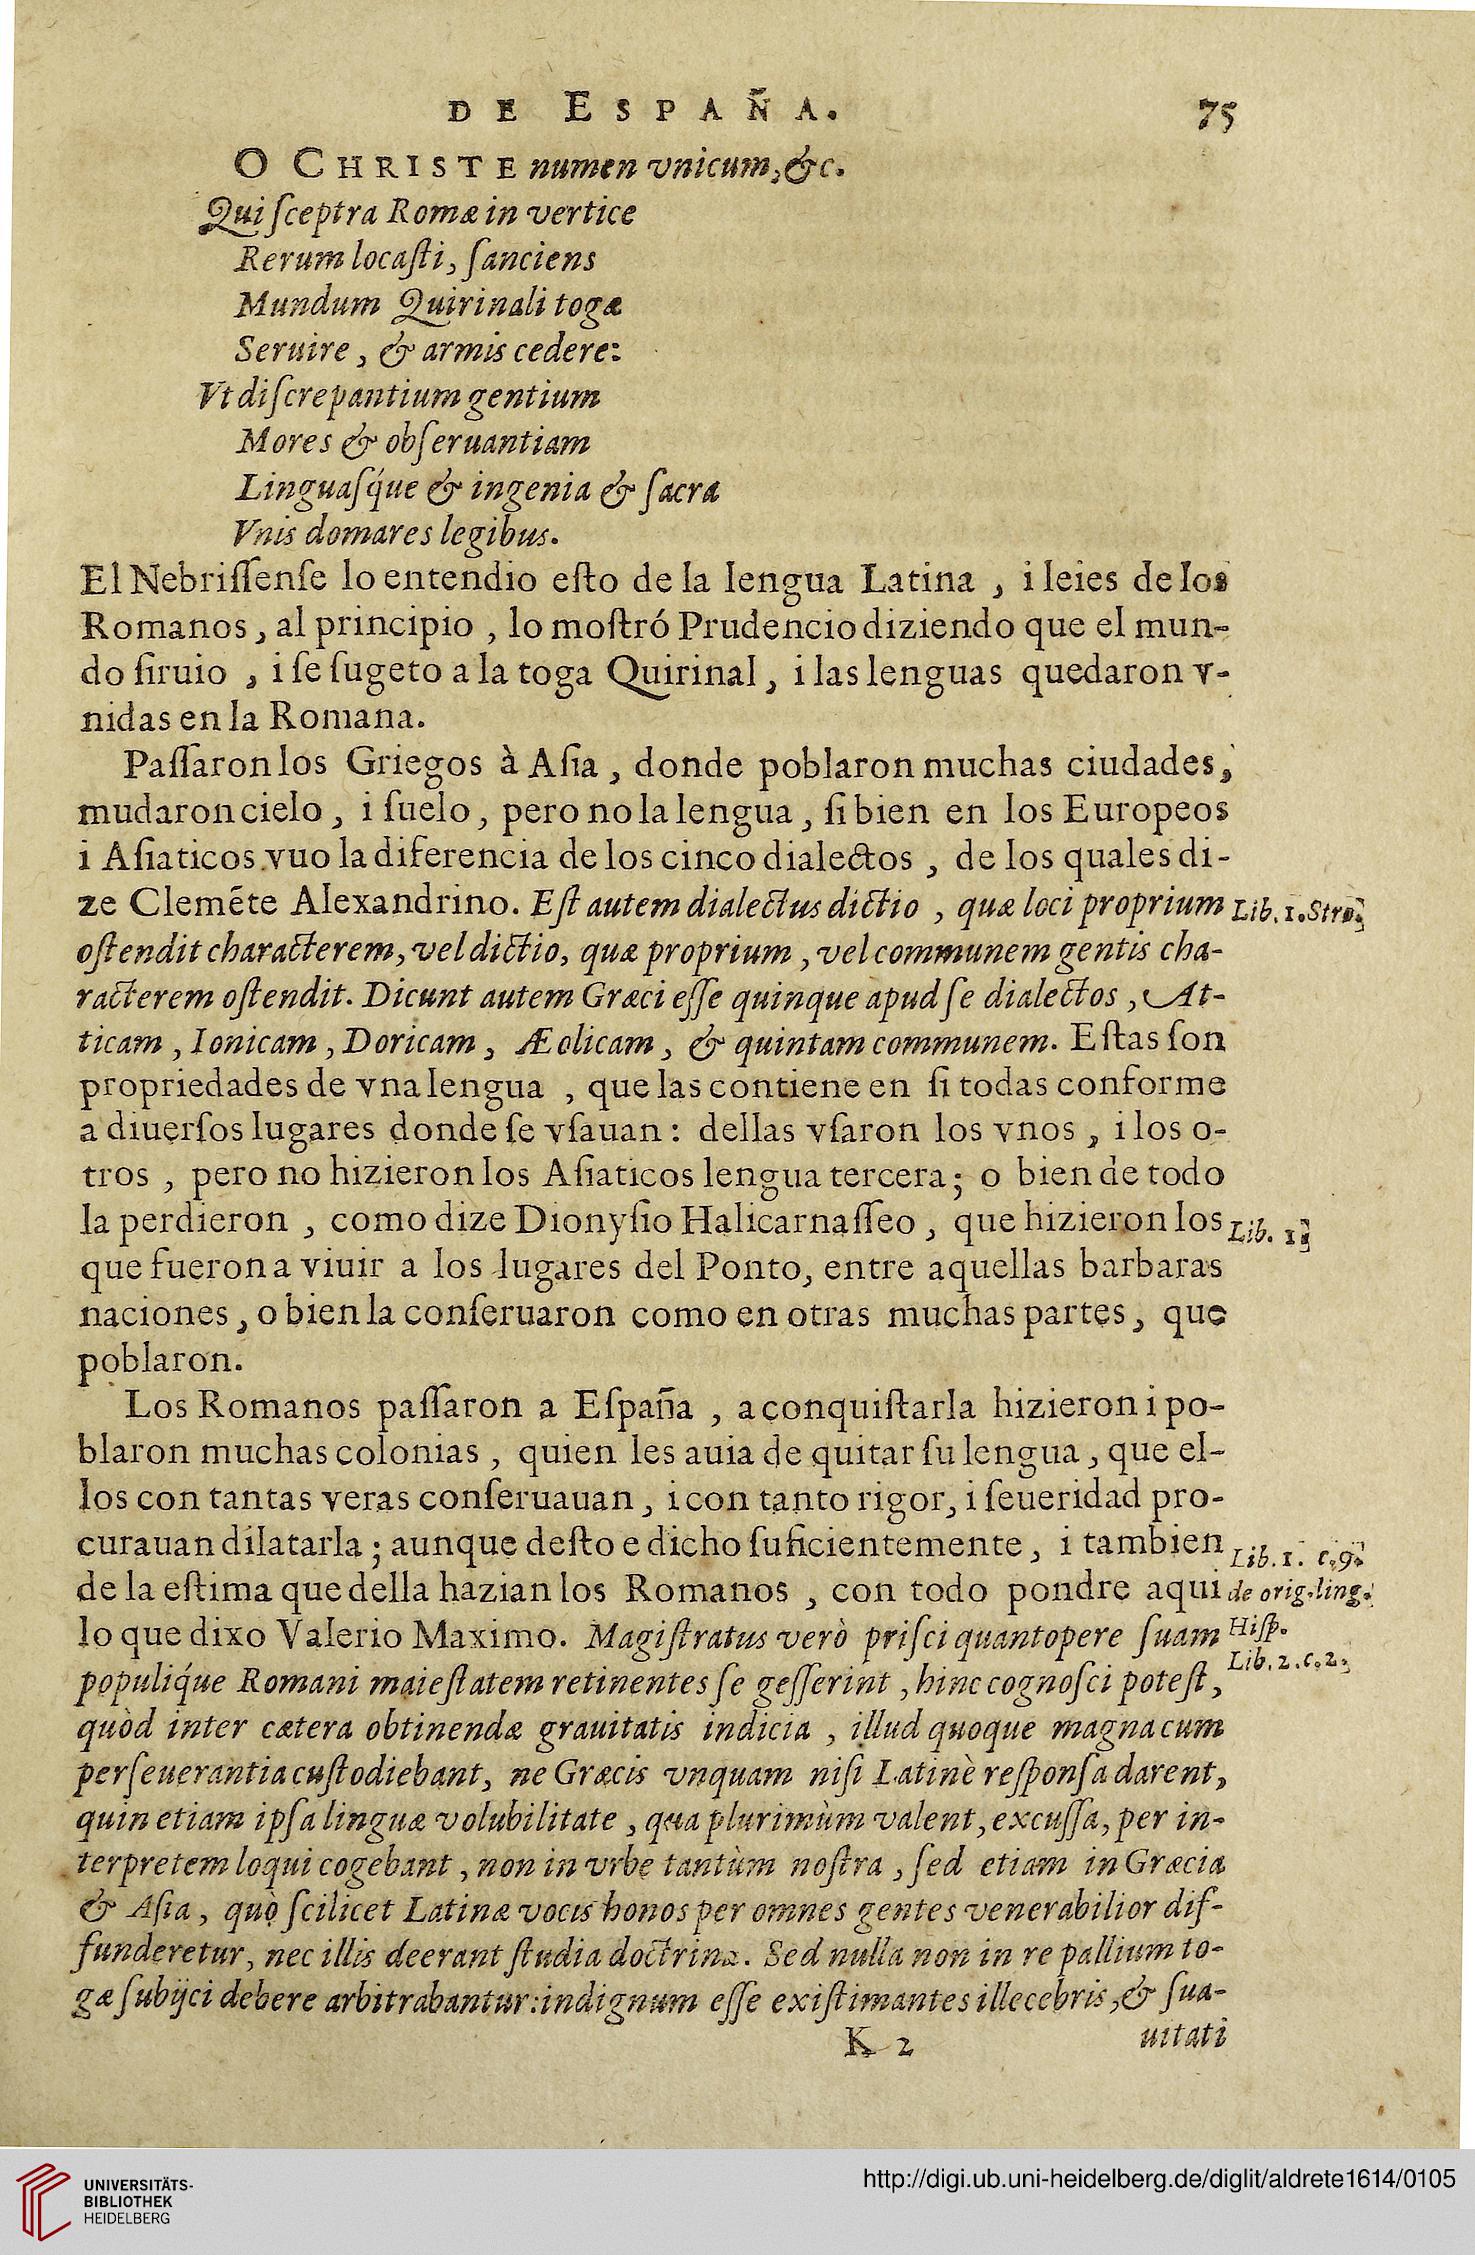 DE ESPAÑA. 75
O CHRISTE numen vnicum, &c.
Qui ſceptra Romæ in vertice
Rerum locaſti, ſanciens
Mundum Quirinali togæ
Seruire, & armis cedere:
Vt diſcrepantium gentium
Mores & obſeruantiam
Linguaſq́ue & ingenia & ſacra
Vnis domares legibus.
El Nebriſſenſe lo entendio eſto de la lengua Latina, i leies de los
Romanos, al principio, lo moſtró Prudencio diziendo que el mun-
do ſiruio, i ſe ſugeto a la toga Quirinal, i las lenguas quedaron v-
nidas en la Romana.
Paſſaron los Griegos à Aſia, donde poblaron muchas ciudades,
mudaron cielo, i ſuelo, pero no la lengua, ſi bien en los Europeos
i Aſiaticos vuo la diferencia de los cinco dialectos, de los quales di-
ze Clemẽte Alexandrino. Eſt autem dialectus dictio, quæ loci proprium Lib. 1. Stro.
oſtendit characterem, vel dictio, quæ proprium, vel communem gentis cha-
racterem oſtendit. Dicunt autem Græci eſſe quinque apud ſe dialectos, At-
ticam, Ionicam, Doricam, Æolicam, & quintam communem. Eſtas ſon
propriedades de vna lengua, que las contiene en ſi todas conforme
a diuerſos lugares donde ſe vſauan: dellas vſaron los vnos, i los o-
tros, pero no hizieron los Aſiaticos lengua tercera; o bien de todo
la perdieron, como dize Dionyſio Halicarnaſſeo, que hizieron los Lib. 1.
que fueron a viuir a los lugares del Ponto, entre aquellas barbaras
naciones, o bien la conſeruaron como en otras muchas partes, que
poblaron.
Los Romanos paſſaron a Eſpaña, a conquiſtarla hizieron i po-
blaron muchas colonias, quien les auia de quitar ſu lengua, que el-
los con tantas veras conſeruauan, i con tanto rigor, i ſeueridad pro-
curauan dilatarla; aunque deſto e dicho ſuficientemente, i tambien Lib. 1. c. 9.
de la eſtima que della hazian los Romanos, con todo pondre aqui de orig. ling.
lo que dixo Valerio Maximo. Magiſtratus verò priſci quantopere ſuam Hiſp.
populiq́ue Romani maieſtatem retinentes ſe geſſerint, hinc cognoſci poteſt, Lib. 2. c. 2.
quòd inter cætera obtinendæ grauitatis indicia, illud quoque magna cum
perſeuerantia cuſtodiebant, ne Græcis vnquam niſi Latinè reſponſa darent,
quin etiam ipſa linguæ volubilitate, qua plurimùm valent, excuſſa, per in-
terpretem loqui cogebant, non in vrbe tantùm noſtra, ſed etiam in Græcia
& Aſia, quò ſcilicet Latinæ vocis honos per omnes gentes venerabilior dif-
funderetur, nec illis deerant ſtudia doctrinæ. Sed nulla non in re pallium to-
gæ ſubijci debere arbitrabantur: indignum eſſe exiſtimantes illecebris, & ſua-
K 2 uitati
UNIVERSITÄTS-
BIBLIOTHEK
HEIDELBERG
http://digi.ub.uni-heidelberg.de/diglit/aldrete1614/0105